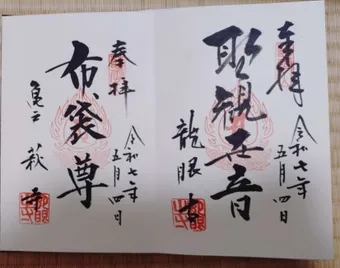 奉拝
令和七年
五月四日
聖観世音
龍眼寺
奉拝
令和七年
五月四日
布袋尊
亀戸 萩寺